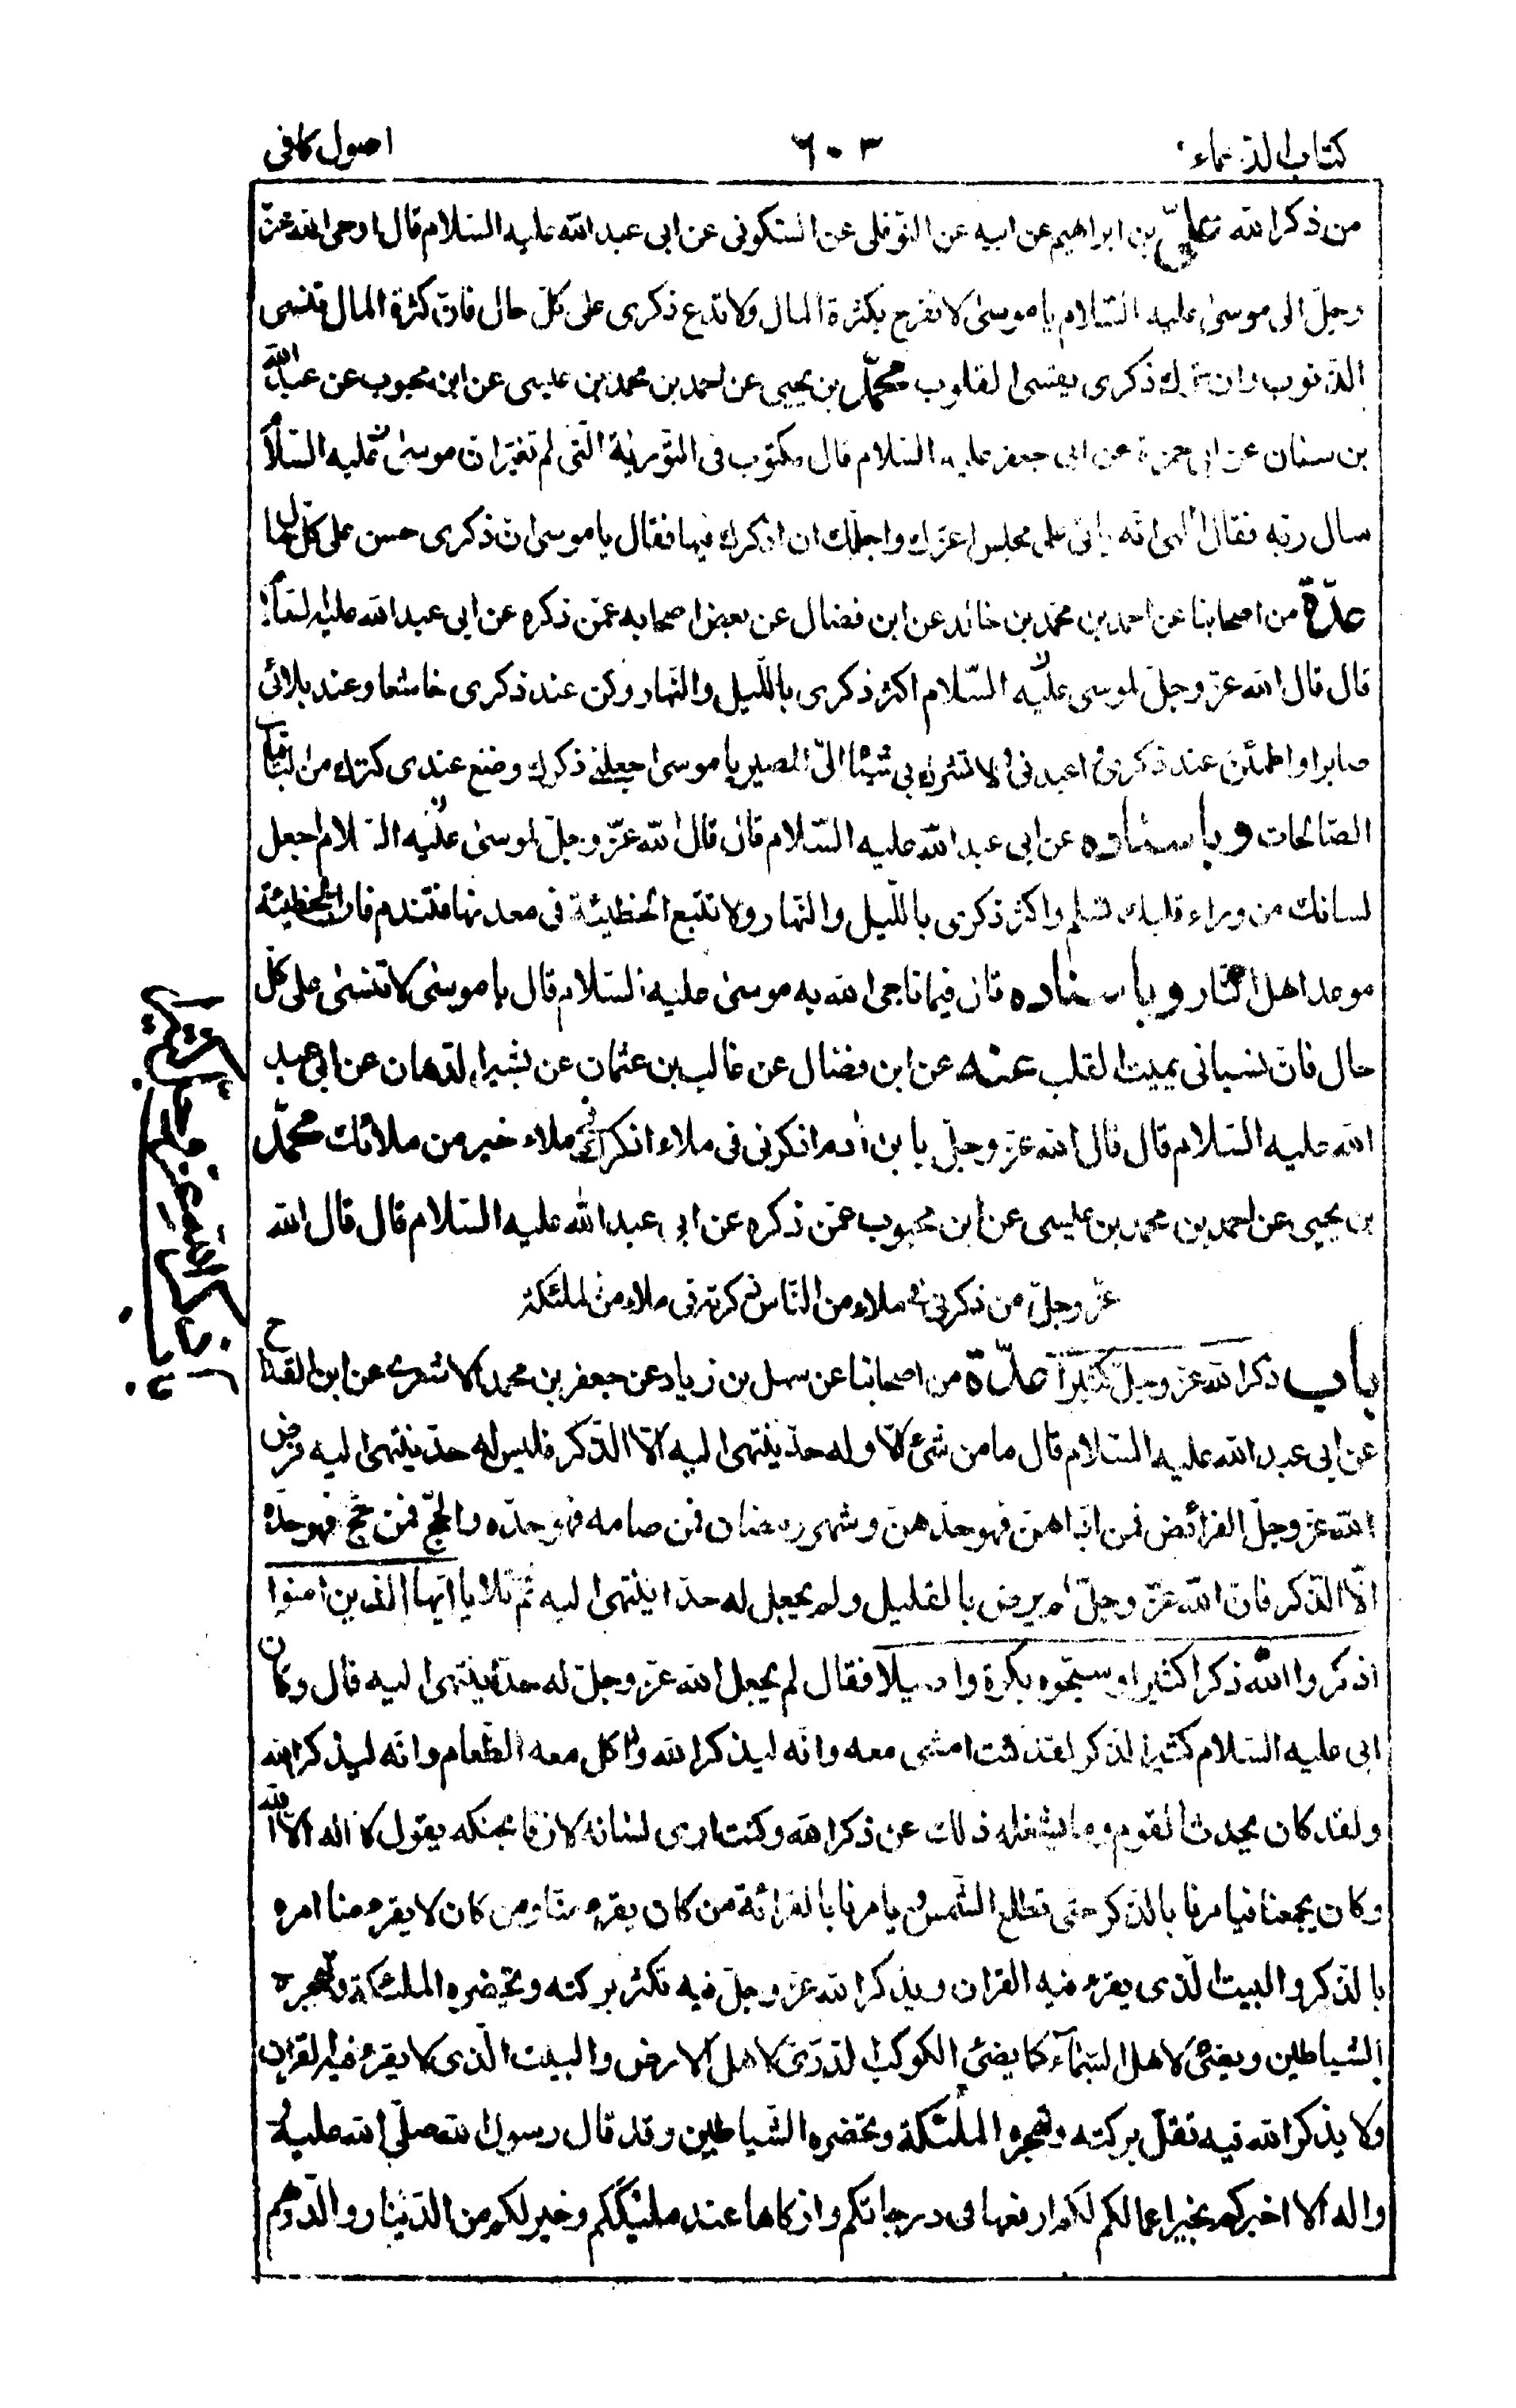 كتاب الدعاء
٦٠٣
اصول كافى
من ذكر الله على بن ابراهيم عن ابيه عن النوفلى عن السكونى عن ابى عبد الله عليه السلام قال اوحى الله عزّ
وجلّ الى موسى عليه السّلام يا موسى لا تفرح بكثرة المال ولا تدع ذكرى على كلّ حال فانّ كثرة المال تنسى
الذنوب وان ترك ذكرى يقسى القلوب محمّد بن يحيى عن احمد بن محمد بن عيسى عن ابن محبوب عن عبد الله
بن سنان عن ابى حمزة عن ابى جعفر عليه السلام قال مكتوب فى التّورية الّتى لم تغيّر ان موسى عليه السّلام
سال ربّه فقال الهى انّه ياتى علىّ مجلس اعزّك واجلّك ان اذكرك فيها فقال يا موسى ان ذكرى حسن على كلّ حال
عدّة من اصحابنا عن احمد بن محمّد بن خالد عن ابن فضال عن بعض اصحابه عمّن ذكره عن ابى عبد الله عليه السّلام
قال قال الله عزّ وجلّ لموسى عليه السّلام اكثر ذكرى باللّيل والنّهار وكن عند ذكرى خاشعا وعند بلائى
صابرا واطمئنّ عند ذكرى واعبدنى ولا تشرك بى شيئا الىّ المصير يا موسى اجعلنى ذكرك وضع عندى كنزك من الباقيات
الصّالحات وباسناده عن ابى عبد الله عليه السّلام قال قال الله عزّ وجلّ لموسى عليه السّلام اجعل
لسانك من وراء قلبك تسلم واكثر ذكرى باللّيل والنّهار ولا تتبع الخطيئة فى معدنها فتندم فان الخطيئة
موعد اهل النّار وباسناده قال فيما ناجى الله به موسى عليه السّلام قال يا موسى لا تنسنى على كلّ
حال فانّ نسيانى يميت القلب عنه عن ابن فضّال عن غالب بن عثمان عن بشير الدّهان عن ابى عبد
الله عليه السّلام قال قال الله عزّ وجلّ يا بن ادم اذكرنى فى ملاء اذكرك فى ملاء خير من ملائك محمّد
بن يحيى عن احمد بن محمد بن عيسى عن ابن محبوب عمّن ذكره عن ابى عبد الله عليه السّلام قال قال الله
عزّ وجلّ من ذكرنى فى ملاء من النّاس ذكرته فى ملاء من الملئكة
باب ذكر الله عزّ وجلّ كثيرا عدّة من اصحابنا عن سهل بن زياد عن جعفر بن محمد الاشعرى عن ابن القداح
عن ابى عبد الله عليه السّلام قال ما من شئ الّا وله حدّ ينتهى اليه الّا الذّكر فليس له حدّ ينتهى اليه فرض
الله عزّ وجلّ الفرائض فمن ادّاهنّ فهو حدّهنّ وشهر رمضان فمن صامه فهو حدّه والحجّ فمن حجّ فهو حدّه
الّا الذّكر فانّ الله عزّ وجلّ لم يرض بالقليل ولم يجعل له حدّا ينتهى اليه ثمّ تلا يا ايّها الذين امنوا
اذكروا الله ذكرا كثيرا وسبّحوه بكرة واصيلا فقال لم يجعل الله عزّ وجلّ له حدّا ينتهى اليه قال وكان
ابى عليه السّلام كثير الذكر لقد كنت امشى معه وانّه ليذكر الله واكل معه الطّعام وانّه ليذكر الله
ولقد كان يحدث القوم وما يشغله ذلك عن ذكر الله وكنت ارى لسانه لازقا بحنكه يقول لا اله الّا الله
وكان يجمعنا فيامرنا بالذكر حتى تطلع الشّمس ويامرنا بالقرائة من كان يقرء منّا ومن كان لا يقرء منا امره
بالذكر والبيت الّذى يقرء فيه القران ويذكر الله عزّ وجلّ فيه تكثر بركته وتحضره الملئكة وتهجره
الشّياطين ويضئ لاهل السّماء كما يضئ الكوكب الدّرّى لاهل الارض والبيت الّذى لا يقرء فيه القران
ولا يذكر الله فيه تقلّ بركته وتهجره الملئكة وتحضره الشّياطين وقد قال رسول الله صلّى الله عليه
واله الا اخبركم بخير اعمالكم لكم ارفعها فى درجاتكم وازكاها عند مليككم وخير لكم من الدّينار والدّرهم
باب ذكر الله عزّ وجلّ كثيرا